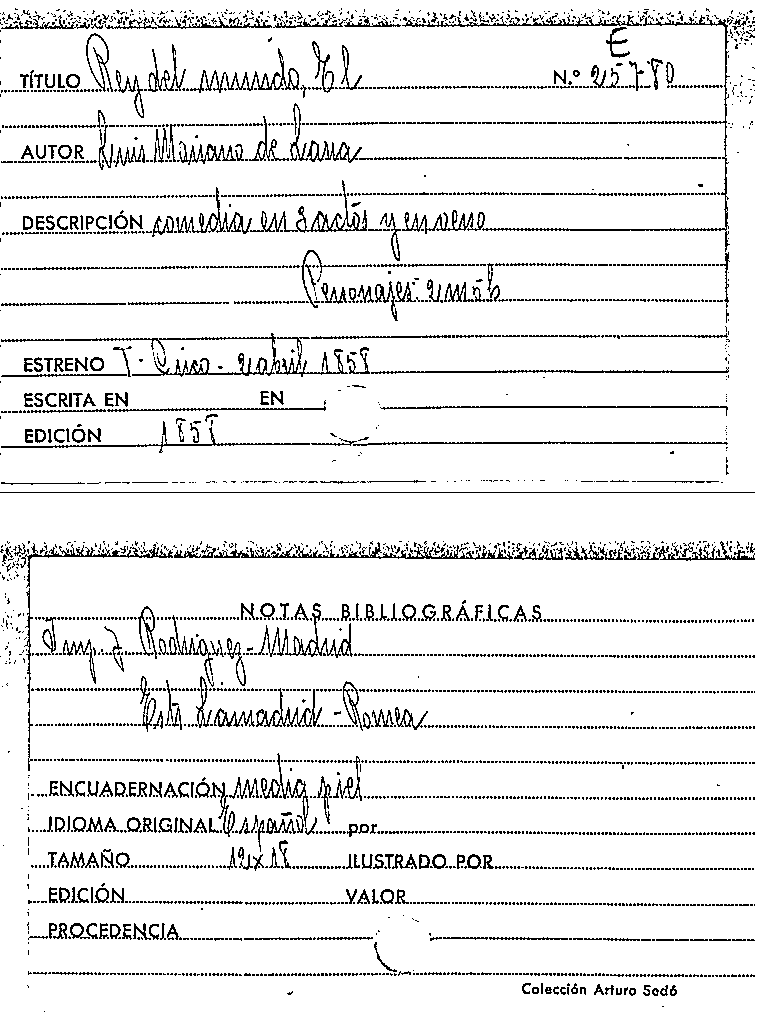 E
TÍTULO Rey del mundo, El N.º 25780
AUTOR Luis Mariano de Larra
DESCRIPCIÓN comedia en 3 actos y en verso
Personajes: 2m 5h
ESTRENO T. Circo - 2 abril 1858
ESCRITA EN EN
EDICIÓN 1858
NOTAS BIBLIOGRÁFICAS
Imp. J. Rodriguez - Madrid
Lamadrid - Romea
ENCUADERNACIÓN media piel
IDIOMA ORIGINAL Español por
TAMAÑO 12x18 ILUSTRADO POR
EDICIÓN VALOR
PROCEDENCIA
Colección Arturo Sedó